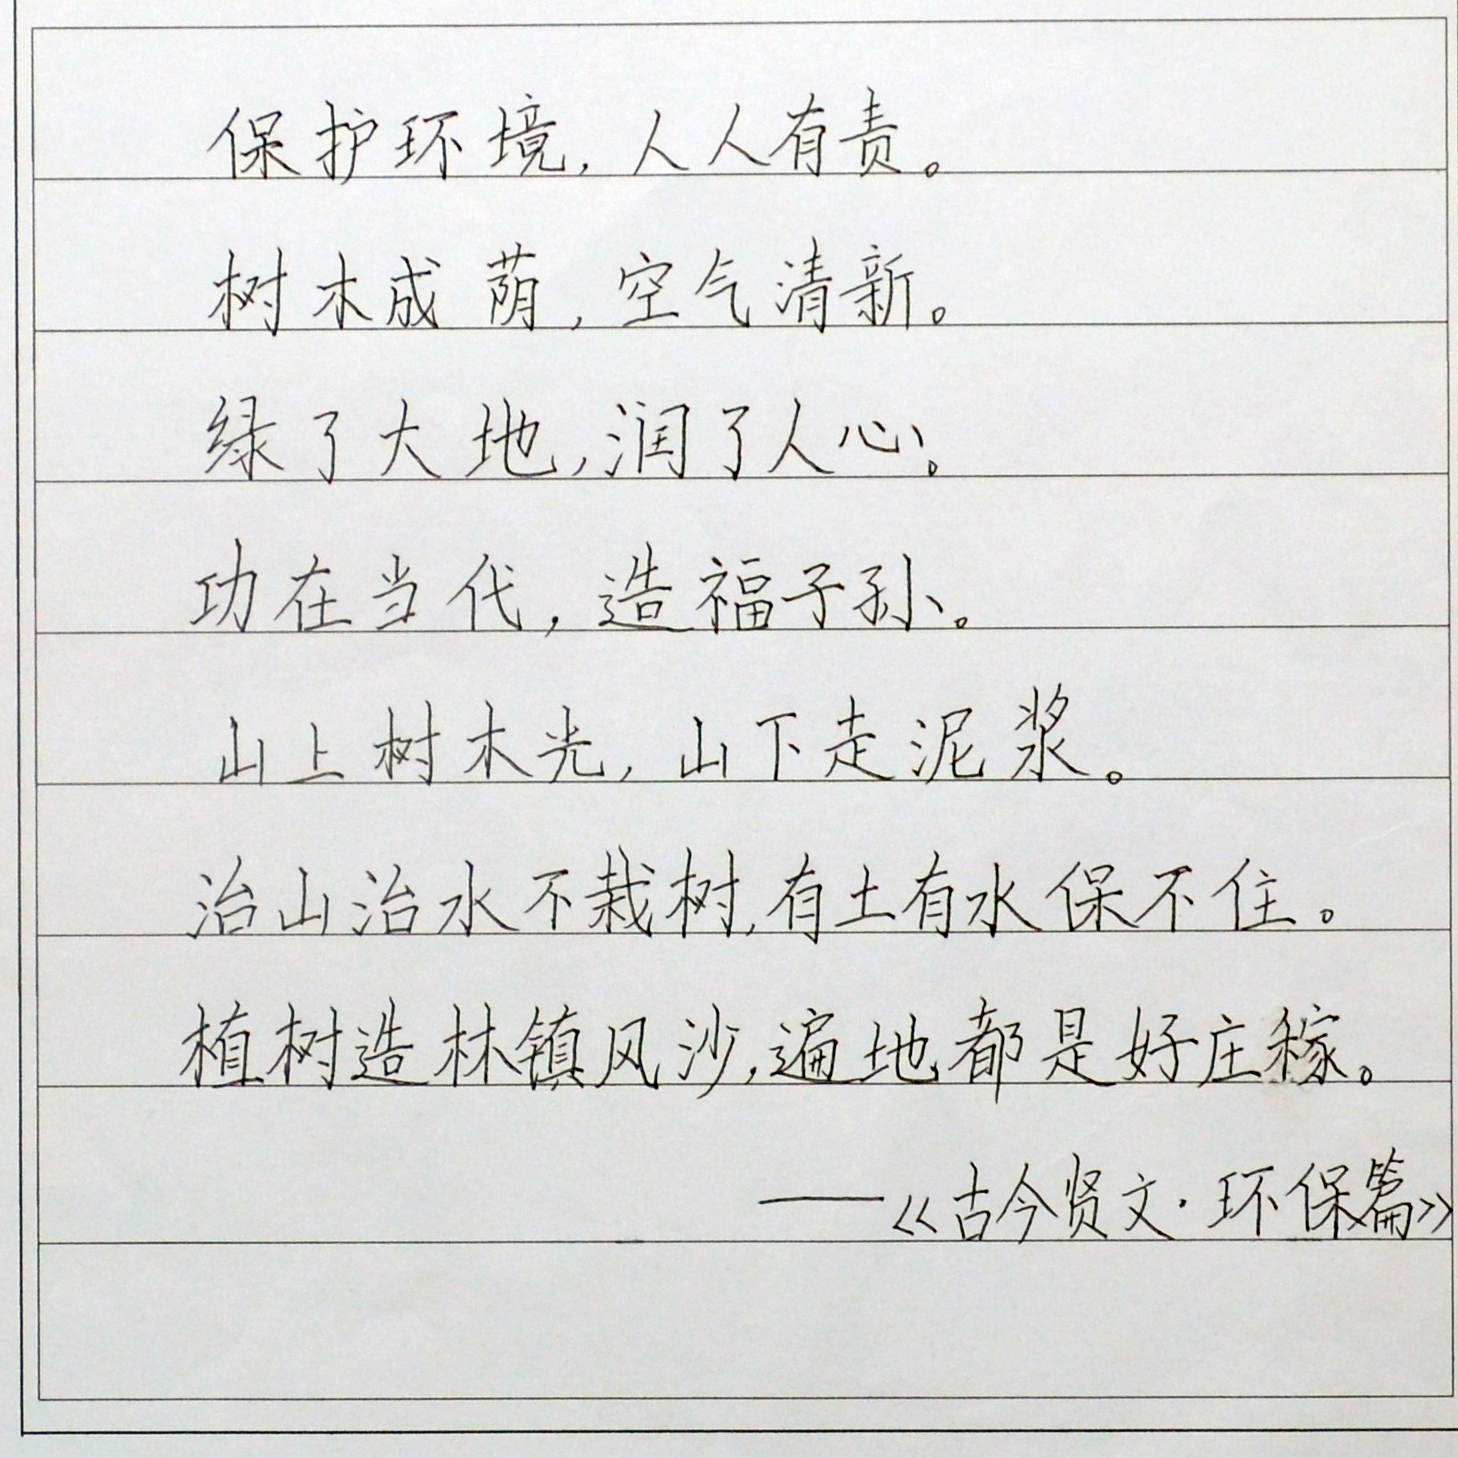 保护环境，人人有责。
树木成荫，空气清新。
绿了大地，润了人心。
功在当代，造福子孙。
山上树木光，山下走泥浆。
治山治水不栽树，有土有水保不住。
植树造林镇风沙，遍地都是好庄稼。
——《古今贤文·环保篇》